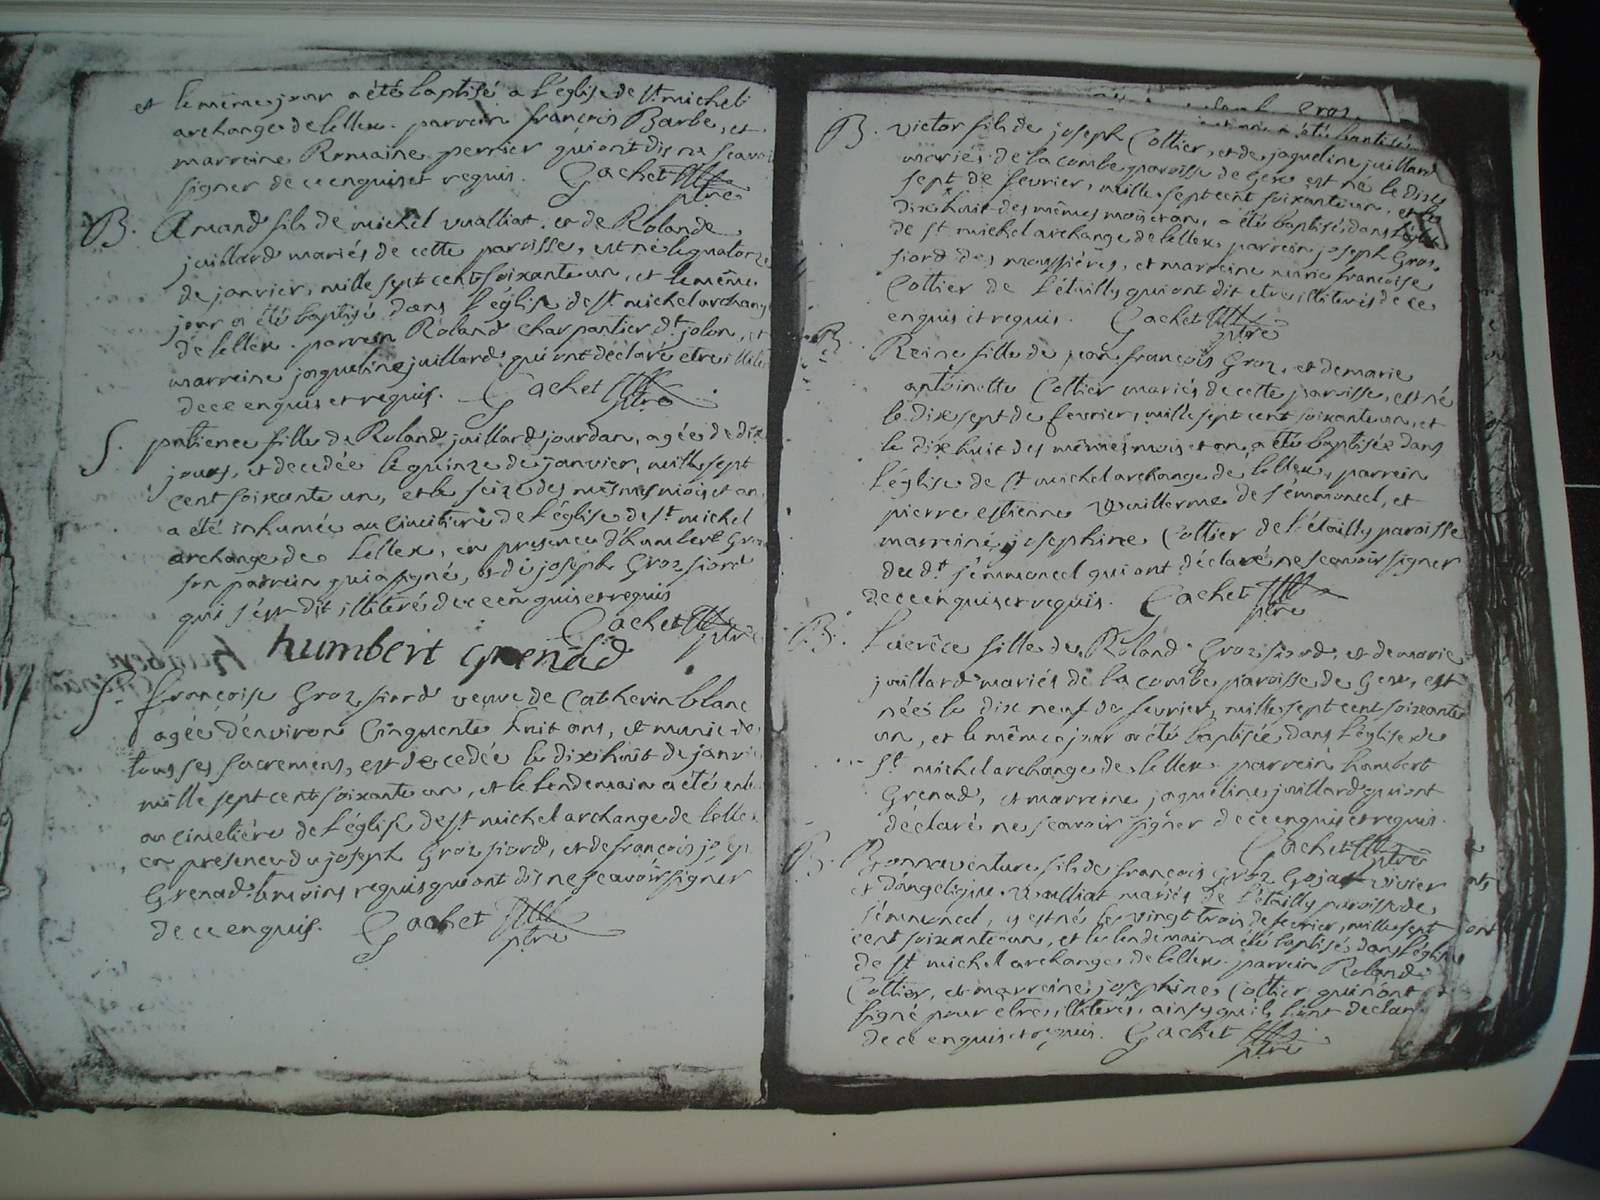 et le même jour a été baptisé a l'église de St. michel
archange de lellex. parrein françois Barbe, et
marreine Romaine perrier qui ont dis ne scavoir
signer de ce enquis et requis. Gachet ptre
B. Amand fils de michel vualliat. et de Rolande
juillard mariés de cette paroisse, est né le quatorze
de janvier, mille sept cent soixante un, et le même
jour a été baptisé dans l'église de st michel archange
de lellex. parrein Roland charpantier dt. jolon, et
marreine jaqueline juillard qui ont déclaré etre illite
de ce enquis et requis. Gachet ptre
S. patience fille de Roland juillard jourdan, agée de dix
jours, est decedée le quinze de janvier, mille sept
cent soixante un, et le seize des mêmes mois et an
a été inhumée au cimitiere de l'église de st. michel
archange de lellex, en presence d'humbert Gros
son parrein qui a signé, et de joseph Groz fiord
qui s'est dit illiteré de ce enquis et requis
Gachet ptre
humbert grenad
S. françoise Groz fiord veuve de Catherin blanc
agée d'environ Cinquante huit ans, et munie de
tous ses sacremens, est decedée le dix huit de janvi
mille sept cent soixante un, et le lendemain a été ent
au cimetière de l'église de st michel archange de lelle
en presence de joseph Groz fiord, et de françois jos
Grenad témoins requis qui ont dis ne scavoir signer
de ce enquis. Gachet ptre
Groz
B. victor fils de joseph Cottier, et de jaqueline juillard
mariés de la combe paroisse de Gex est né le dix
sept de fevrier, mille sept cent soixante un, et le
dix huit des mêmes mois et an, a été baptisé dans l'église
de st michel archange de lellex parrein joseph Gros
fiord des moussières, et marreine marie françoise
Cottier de l'étailly qui ont dit etre illiterés de ce
enquis et requis. Gachet ptre
B. Reine fille de jean françois Groz, et de marie
antoinette Cottier mariés de cette paroisse, est né
le dix sept de fevrier, mille sept cent soixante un, et
le dix huit des mêmes mois et an, a été baptisée dans
l'église de st michel archange de lellex, parrein
pierre estienne Vuillerme de sémmoncel, et
marreine josephine Cottier de l'étailly paroisse
du dt. sémmoncel qui ont déclaré ne scavoir signer
de ce enquis et requis. Gachet ptre
B. Lucrèce fille de Roland Groz fiord, et de marie
juillard mariés de la combe paroisse de Gex, est
née le dix neuf de fevrier, mille sept cent soixante
un, et le même jour a été baptisée dans l'église de
St. michel archange de lellex parrein humbert
Grenad, et marreine jaqueline juillard qui ont
déclaré ne scavoir signer de ce enquis et requis.
Gachet ptre
B. Bonnaventure fils de françois Groz Gojat vivier
et d'angelique Vualliat mariés de l'étailly paroisse de
sémmoncel, y est né le vingt trois de fevrier, mille sept
cent soixante un, et le lendemain a été baptisé dans l'église
de st michel archange de lellex parrein Roland
Cottier, et marreine josephine Cottier qui n'ont
signé pour etre illiterés, ainsy qu'ils l'ont déclaré
de ce enquis et requis. Gachet ptre